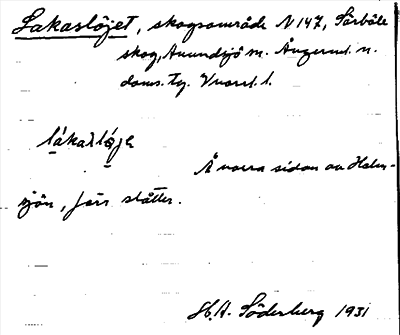 Lakaslöjet, skogsområde N 147, Sörböle
skog, Anundsjö sn. Ångerml. n.
doms. tg. Vnorrl. l.
lákaslö̀je
Å norra sidan av Holm-
sjön, förr slåtter.
H.A. Söderberg 1931